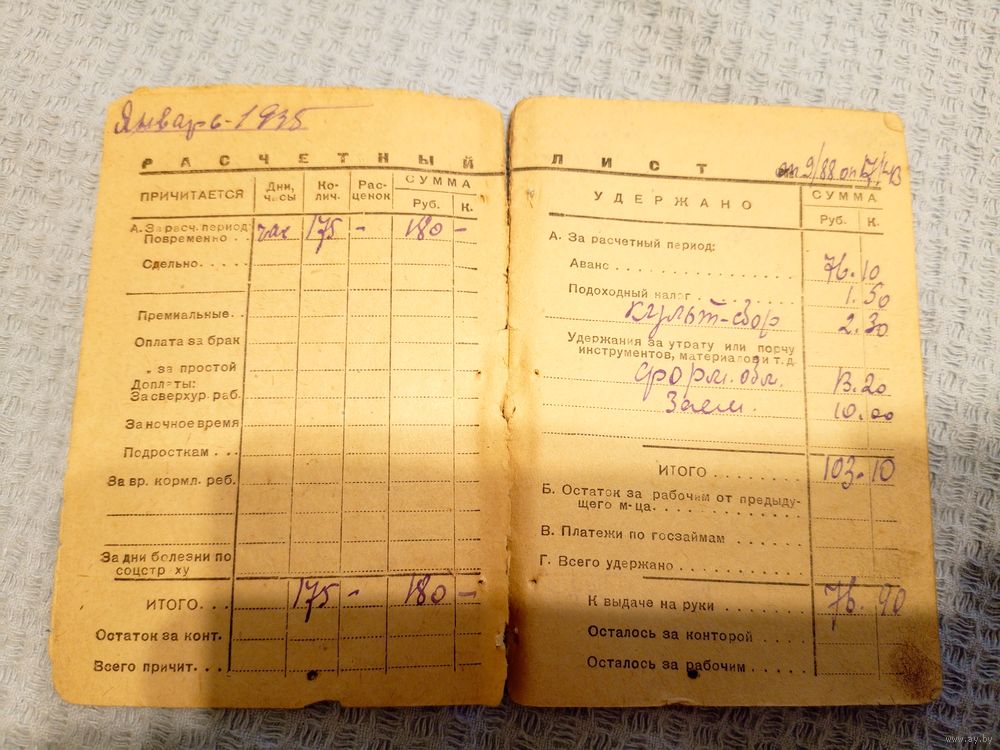 Январь - 1935
РАСЧЕТНЫЙ
ПРИЧИТАЕТСЯ Дни, часы Ко-лич. Рас-ценок СУММА
Руб. К.
А. За расч. период
Повременно . . час 175 - 180 -
Сдельно . . . . .
Премиальные . .
Оплата за брак
„ за простой
Доплаты:
За сверхур. раб.
За ночное время
Подросткам . . .
За вр. кормл. реб.
За дни болезни по
соцстр ху
ИТОГО . . . 175 - 180 -
Остаток за конт.
Всего причит. . .
ЛИСТ
УДЕРЖАНО СУММА
Руб. К.
А. За расчетный период:
Аванс . . . . . . . . . . . 76.10
Подоходный налог . . . . . . . 1.50
Культ-сбор 2.30
Удержания за утрату или порчу
инструментов, материалов и т. д.
13.20
Заем. 10.00
ИТОГО . . . . . . . 103-10
Б. Остаток за рабочим от предыду-
щего м-ца . . . . . . . . . .
В. Платежи по госзаймам
Г. Всего удержано . . . . . . . .
К выдаче на руки . . . . . . 76.90
Осталось за конторой . . . . .
Осталось за рабочим . . . . .
www.ay.by